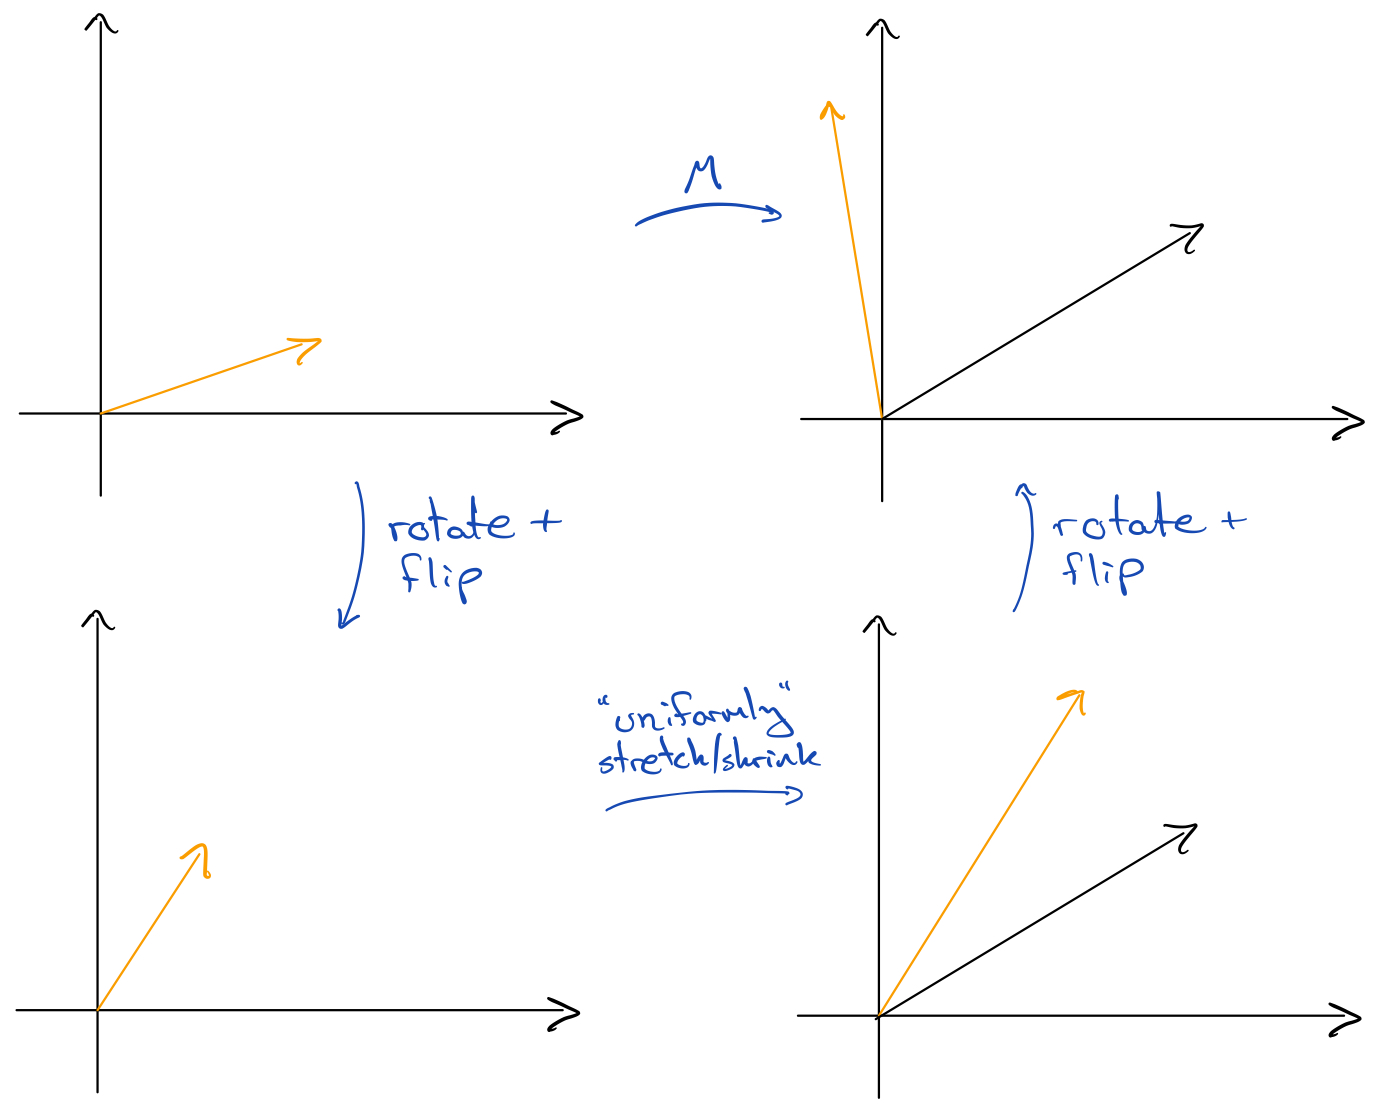 M
rotate +
flip
rotate +
flip
"uniformly"
stretch/shrink